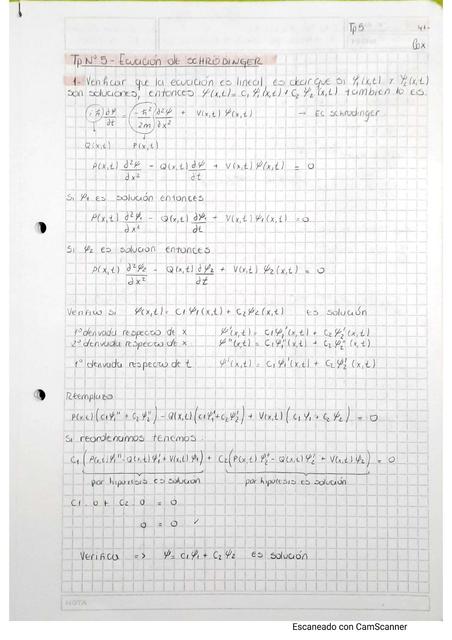 Tp5
Tp Nº 5 - Ecuación de SCHRÖDINGER
1- Verificar que la ecuación es lineal es decir que si Ψ₁(x,t) y Ψ₂(x,t)
son soluciones, entonces Ψ(x,t) = C₁Ψ₁(x,t) + C₂Ψ₂(x,t) también lo es.
iħ ∂Ψ/∂t = -ħ²/2m ∂²Ψ/∂x² + V(x,t) Ψ(x,t) → Ec Schrodinger
Q(x,t) P(x,t)
P(x,t) ∂²Ψ/∂x² - Q(x,t) ∂Ψ/∂t + V(x,t) Ψ(x,t) = 0
Si Ψ₁ es solución entonces
P(x,t) ∂²Ψ₁/∂x² - Q(x,t) ∂Ψ₁/∂t + V(x,t) Ψ₁(x,t) = 0
Si Ψ₂ es solución entonces
P(x,t) ∂²Ψ₂/∂x² - Q(x,t) ∂Ψ₂/∂t + V(x,t) Ψ₂(x,t) = 0
Verifico si Ψ(x,t) = C₁Ψ₁(x,t) + C₂Ψ₂(x,t) es solución
1º derivada respecto de x Ψ'(x,t) = C₁Ψ₁'(x,t) + C₂Ψ₂'(x,t)
2º derivada respecto de x Ψ''(x,t) = C₁Ψ₁''(x,t) + C₂Ψ₂''(x,t)
1º derivada respecto de t Ψ'(x,t) = C₁Ψ₁'(x,t) + C₂Ψ₂'(x,t)
Reemplazo
P(x,t)(C₁Ψ₁'' + C₂Ψ₂'') - Q(x,t)(C₁Ψ₁' + C₂Ψ₂') + V(x,t)(C₁Ψ₁ + C₂Ψ₂) = 0
Si reordenamos tenemos:
C₁(P(x,t)Ψ₁'' - Q(x,t)Ψ₁' + V(x,t)Ψ₁) + C₂(P(x,t)Ψ₂'' - Q(x,t)Ψ₂' + V(x,t)Ψ₂) = 0
por hipótesis es solución por hipótesis es solución
C₁ . 0 + C₂ . 0 = 0
0 = 0 ✓
Verifica => Ψ = C₁Ψ₁ + C₂Ψ₂ es solución
NOTA
Escaneado con CamScanner